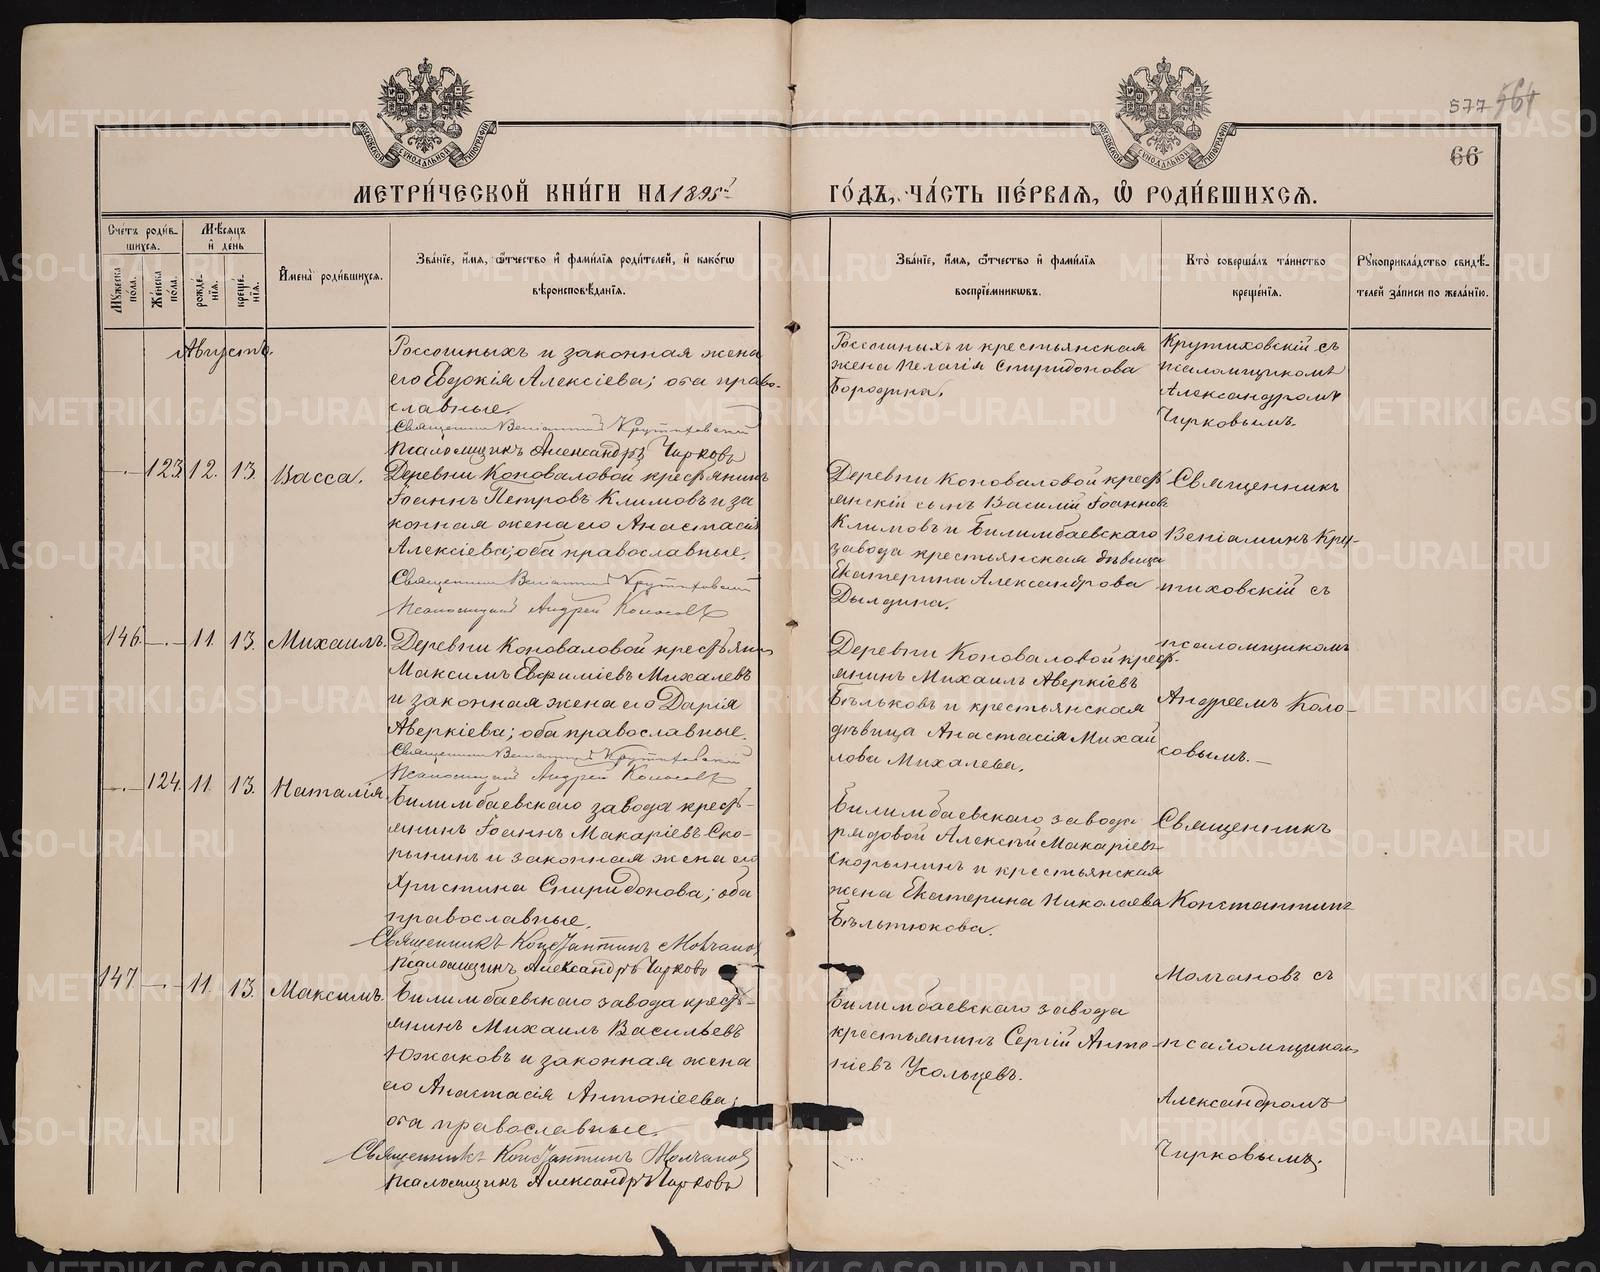 577 564
66
МЕТРИ́ЧЕСКОЙ КНИ́ГИ НА 1895й
ГО́ДЪ, ЧА́СТЬ ПЕ́РВАЯ, Ѡ РОДИ́ВШИХСЯ.
Сче́тъ роди́вшихся.
Мꙋ́жеска по́ла.
Же́нска по́ла.
Мѣ́сяцъ и҆ де́нь
рожде́нїя.
креще́нїя.
И҆мена̀ роди́вшихся.
Зва́нїе, и҆́мя, ѻ҆́тчество и҆ фами́лїя роди́телей, и҆ како́гѡ
вѣроисповѣ́данїя.
Зва́нїе, и҆́мя, ѻ҆́тчество и҆ фами́лїя
воспрїе́мникѡвъ.
Кто̀ соверша́лъ та́инство
креще́нїя.
Рꙋкоприкла́дство свидѣ́телей за́писи по жела́нїю.
Августъ.
Россошныхъ и законная жена
его Евдокія Алексіева; оба право-
славные.
Священникъ Веніаминъ Крутиховскій
Псаломщикъ Александръ Чирковъ
Россошныхъ и крестьянская
жена Пелагія Спиридонова
Бородина.
Крутиховскій съ
псаломщикомъ
Александромъ
Чирковымъ.
-.- 123. 12. 13. Васса.
Деревни Коноваловой крестьянинъ
Іоаннъ Петровъ Климовъ и за
конная жена его Анастасія
Алексіева; оба православные.
Священникъ Веніаминъ Крутиховскій
Псаломщикъ Андрей Колосовъ
Деревни Коноваловой крест-
янскій сынъ Василій Іоаннов
Климовъ и Билимбаевскаго
завода крестьянская дѣвица
Екатерина Александрова
Дылдина.
Священникъ
Веніаминъ Кру-
тиховскій съ
псаломщикомъ
Андреемъ Коло-
совымъ.-
146. -.- 11. 13. Михаилъ.
Деревни Коноваловой крестьянин
Максимъ Евфиміевъ Михалевъ
и законная жена его Дарія
Аверкіева; оба православные.
Священникъ Веніаминъ Крутиховскій
Псаломщикъ Андрей Колосовъ
Деревни Коноваловой крест-
янинъ Михаилъ Аверкіевъ
Бѣльковъ и крестьянская
дѣвица Анастасія Михай
лова Михалева.
-.- 124. 11. 13. Наталія.
Билимбаевскаго завода крест-
янинъ Іоаннъ Макаріевъ Ско-
рынинъ и законная жена его
Христина Спиридонова; оба
православные.
Священникъ Константинъ Молчановъ
Псаломщикъ Александръ Чирковъ
Билимбаевскаго завода
рядовой Алексѣй Макаріевъ
Скорынинъ и крестьянская
жена Екатерина Николаева
Бѣльтюкова.
Священникъ
Константинъ
Молчановъ съ
псаломщиком
Александромъ
Чирковымъ.
147 -.- 11. 13. Максимъ.
Билимбаевскаго завода крест-
янинъ Михаилъ Васильевъ
Южаковъ и законная жена
его Анастасія Антоніеева;
оба православные.
Священникъ Константинъ Молчановъ
Псаломщикъ Александръ Чирковъ
Билимбаевскаго завода
крестьянинъ Сергій Анто-
ніевъ Усольцевъ.
METRIKI.GASO-URAL.RU